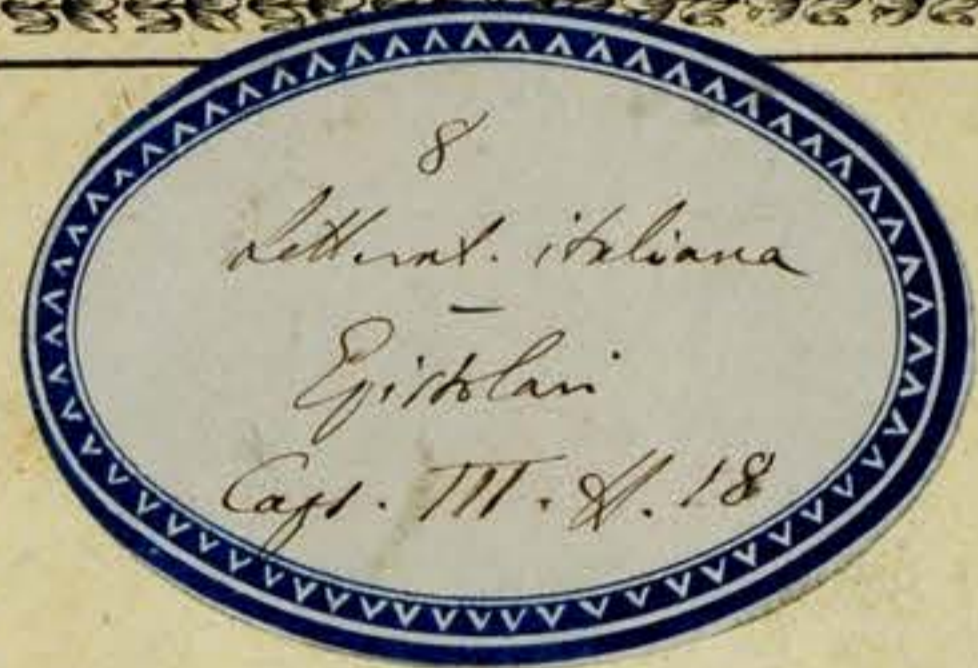 8
Letterat. italiana
—
Epistolari
Caps. III. N. 18